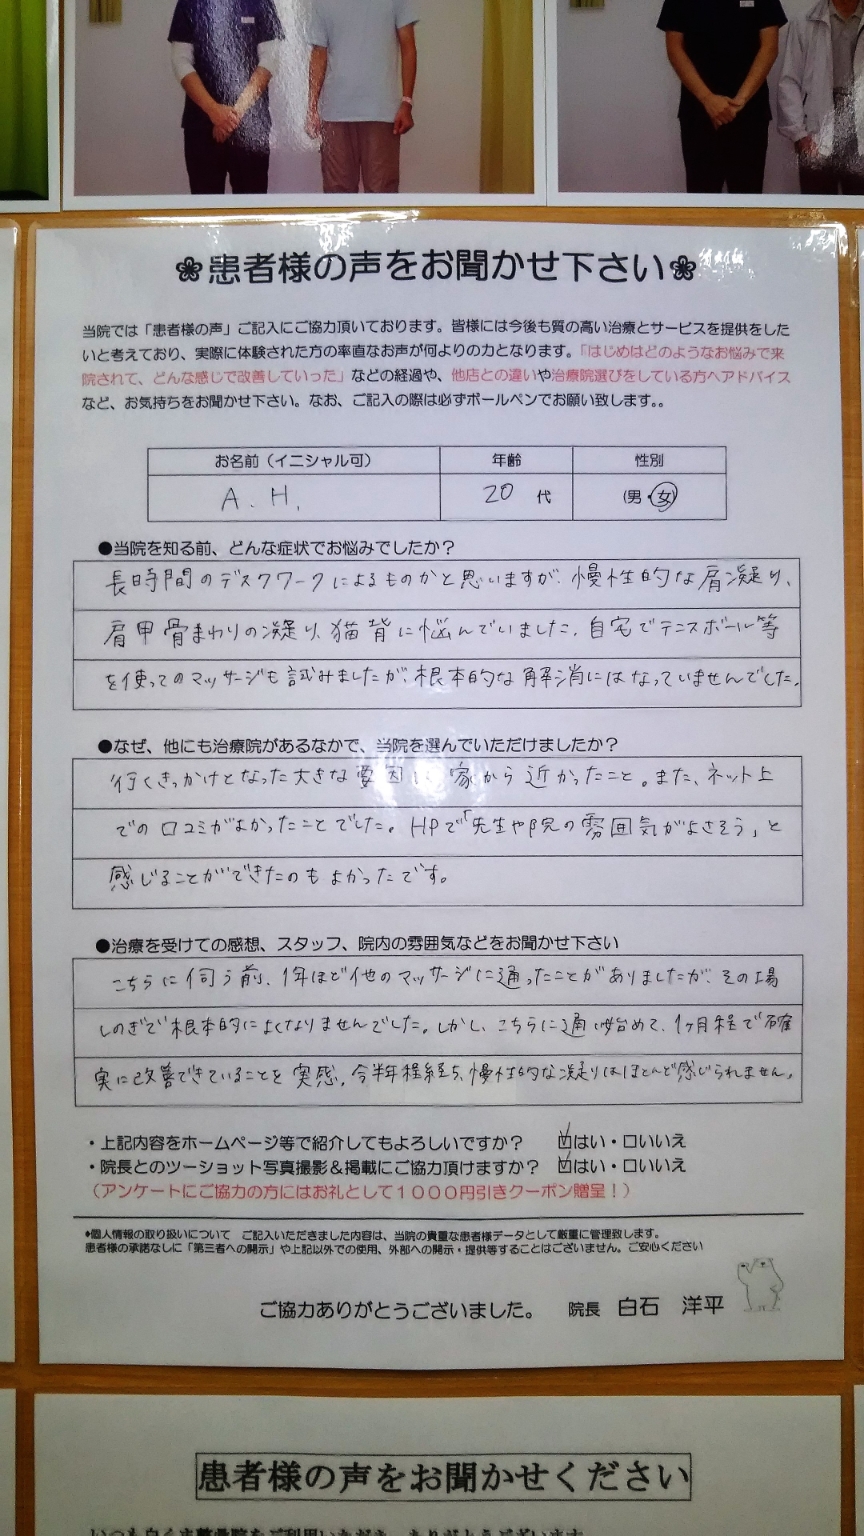 ❀患者様の声をお聞かせ下さい❀
当院では「患者様の声」ご記入にご協力頂いております。皆様には今後も質の高い治療とサービスを提供をした
いと考えており、実際に体験された方の率直なお声が何よりの力となります。「はじめはどのようなお悩みで来
院されて、どんな感じで改善していった」などの経過や、他店との違いや治療院選びをしている方へアドバイス
など、お気持ちをお聞かせ下さい。なお、ご記入の際は必ずボールペンでお願い致します。。
お名前（イニシャル可） 年齢 性別
A.H. 20 代 (男・女)
●当院を知る前、どんな症状でお悩みでしたか？
長時間のデスクワークによるものかと思いますが、慢性的な肩凝り、
肩甲骨まわりの凝り、猫背に悩んでいました。自宅でテニスボール等
を使ってのマッサージも試みましたが、根本的な解消にはなっていませんでした。
●なぜ、他にも治療院があるなかで、当院を選んでいただけましたか？
行くきっかけとなった大きな要因は、家から近かったこと。また、ネット上
での口コミがよかったことでした。HPで「先生や院の雰囲気がよさそう」と
感じることができたのもよかったです。
●治療を受けての感想、スタッフ、院内の雰囲気などをお聞かせ下さい
こちらに伺う前、1年ほど他のマッサージに通ったことがありましたが、その場
しのぎで根本的によくなりませんでした。しかし、こちらに通い始めて、1ヶ月程で確
実に改善できていることを実感。今半年程経ち、慢性的な凝りはほとんど感じられません。
・上記内容をホームページ等で紹介してもよろしいですか？ ☑はい・□いいえ
・院長とのツーショット写真撮影＆掲載にご協力頂けますか？ ☑はい・□いいえ
（アンケートにご協力の方にはお礼として１０００円引きクーポン贈呈！）
♦個人情報の取り扱いについて ご記入いただきました内容は、当院の貴重な患者様データとして厳重に管理致します。
患者様の承諾なしに「第三者への開示」や上記以外での使用、外部への開示・提供等することはございません。ご安心ください
ご協力ありがとうございました。 院長 白石 洋平
患者様の声をお聞かせください